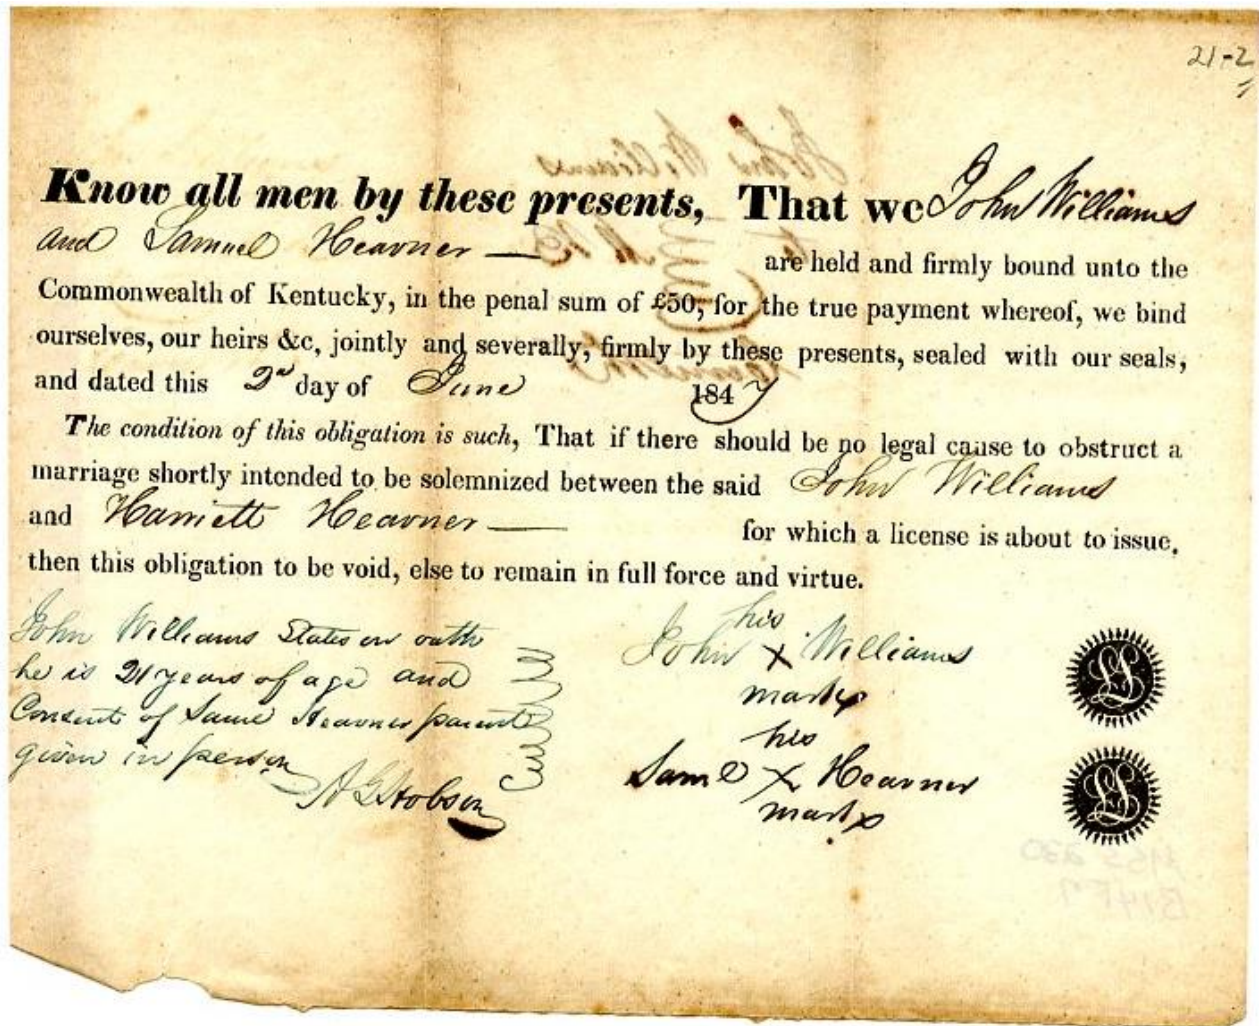 21-2
Know all men by these presents, That we John Williams
and Samuel Heavner —
are held and firmly bound unto the
Commonwealth of Kentucky, in the penal sum of £50, for the true payment whereof, we bind
ourselves, our heirs &c, jointly and severally, firmly by these presents, sealed with our seals,
and dated this 2d day of June 1847
The condition of this obligation is such, That if there should be no legal cause to obstruct a
marriage shortly intended to be solemnized between the said John Williams
and Harriett Heavner — for which a license is about to issue,
then this obligation to be void, else to remain in full force and virtue.
John Williams States on oath
he is 21 years of age and
Consent of Saml Heavner parent
given in person
A G Hobson
his
John X Williams
mark
LS
his
Saml X Heavner
mark
LS